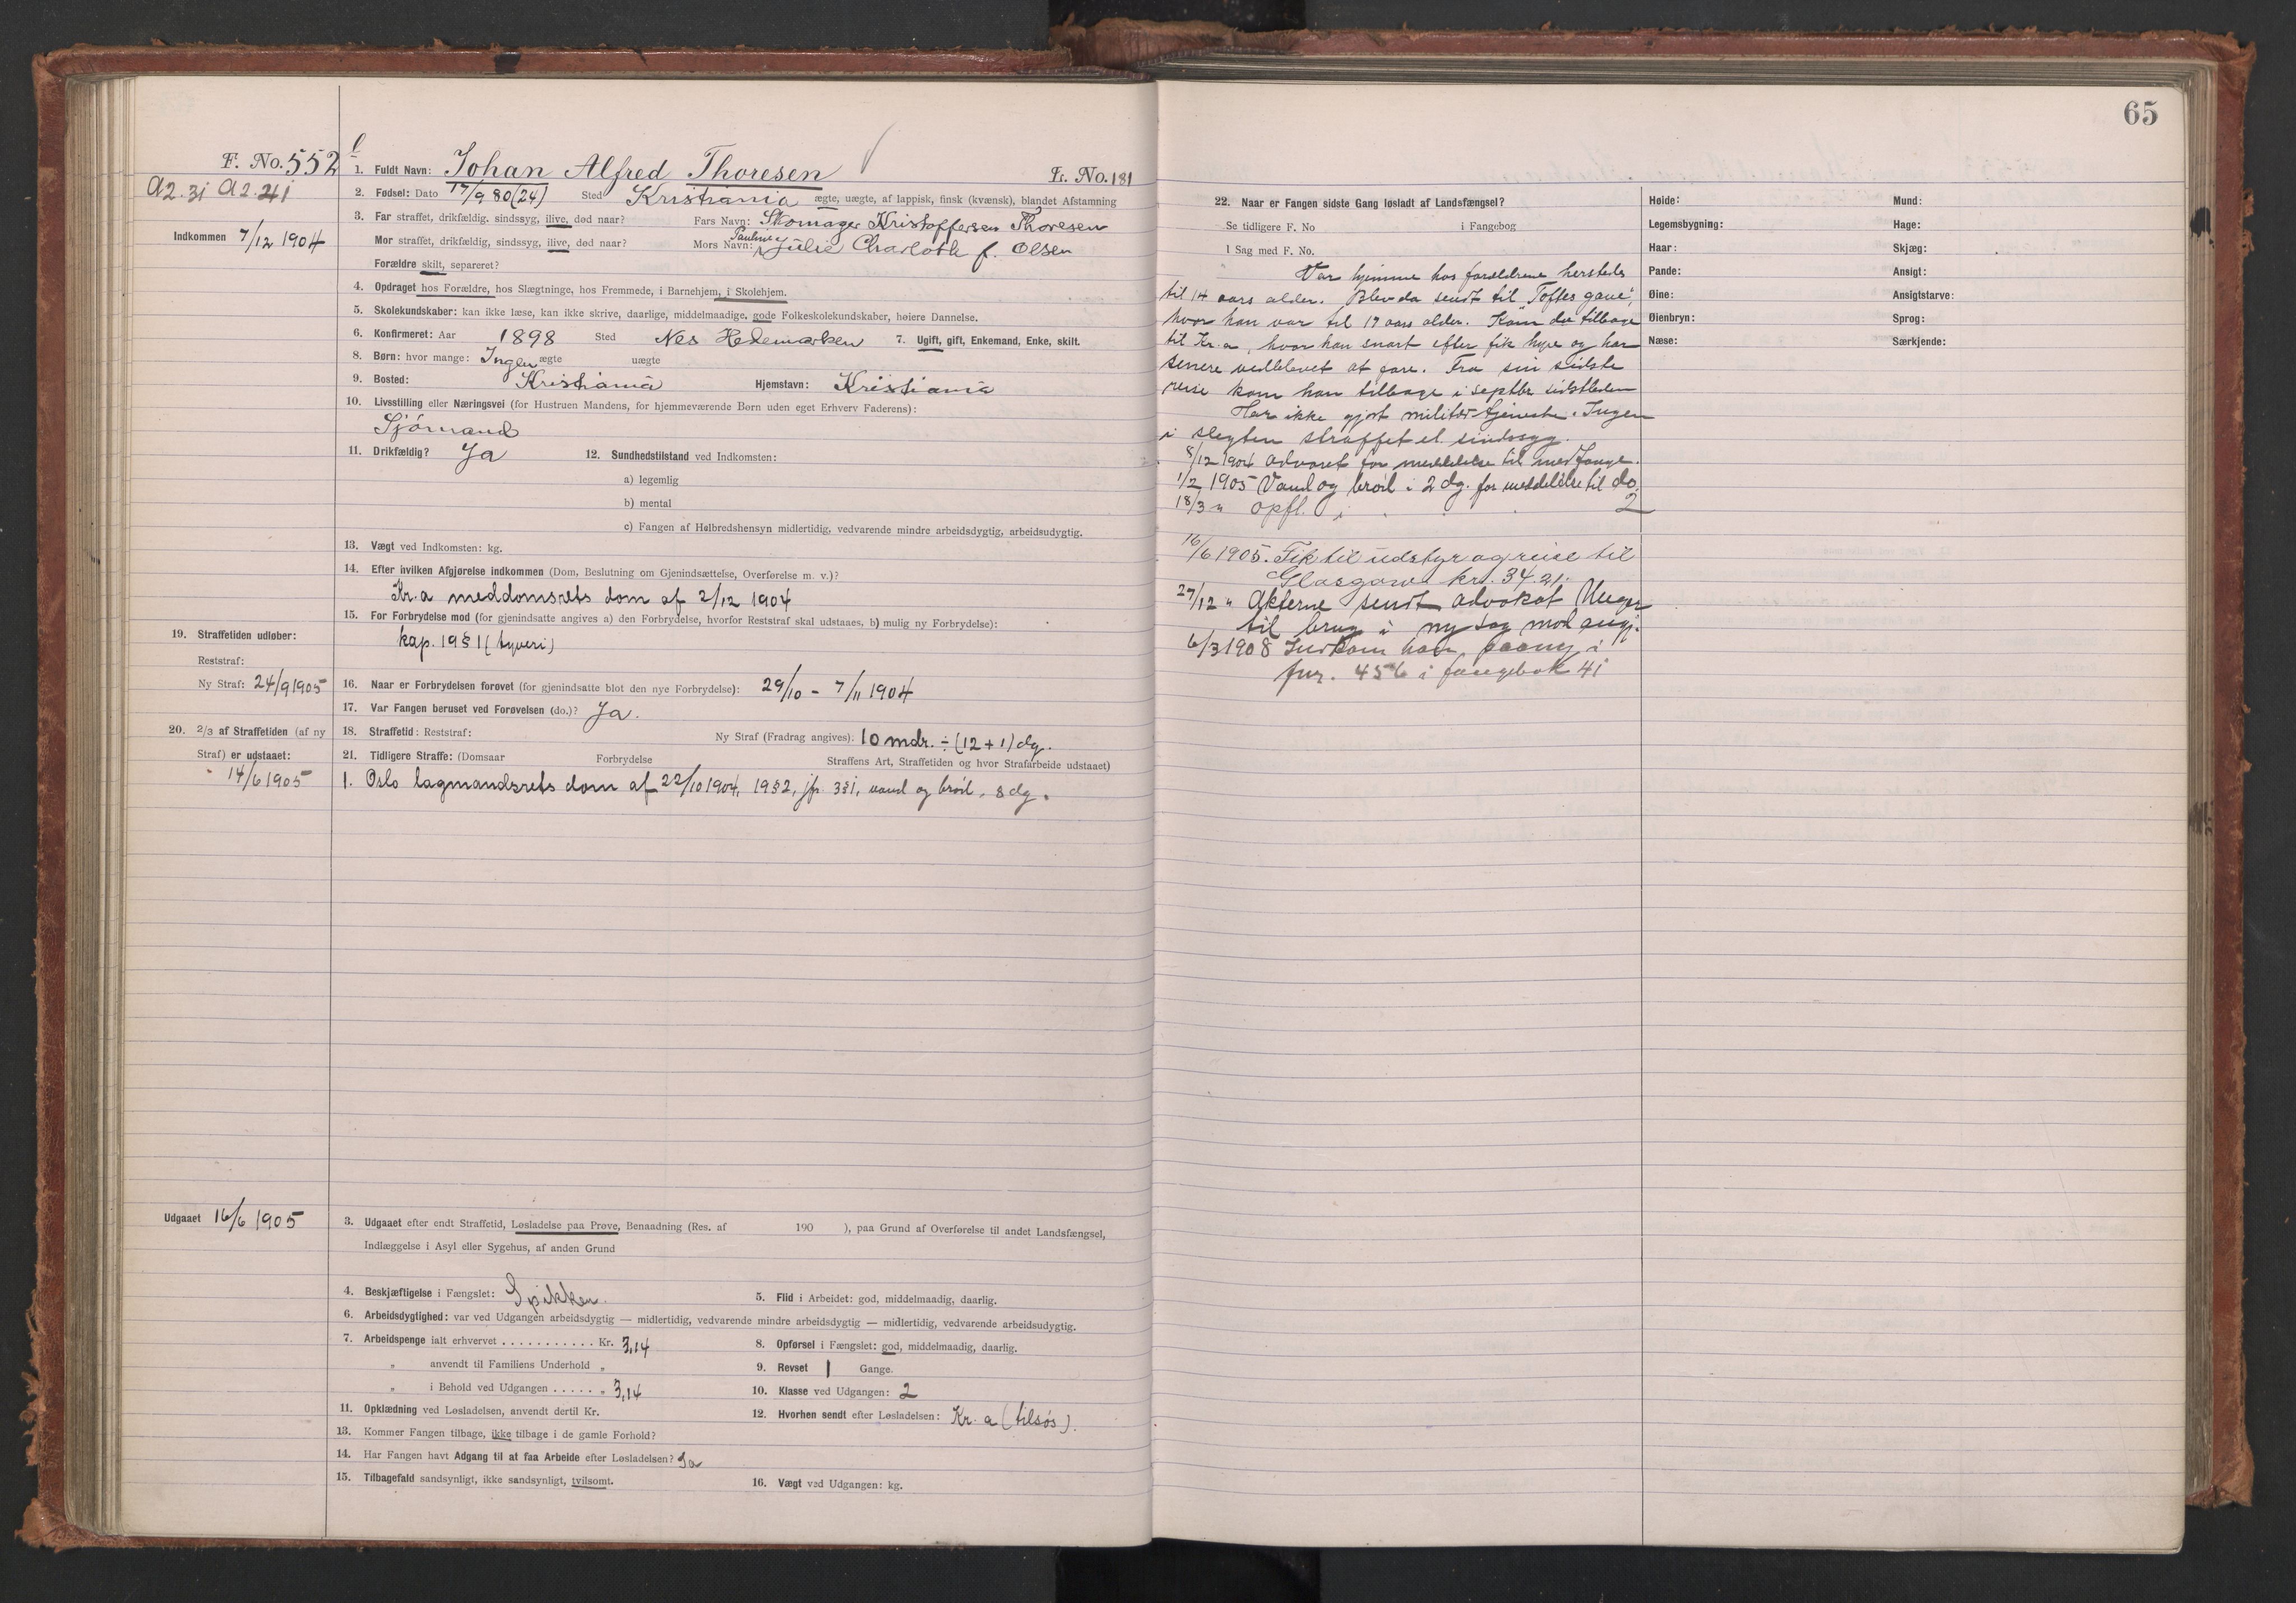 65
F. No. 552
A2. 3i A2. 4i
Indkommen 7/12 1904
1. Fuldt Navn: Johan Alfred Thoresen L. No. 181
2. Fødsel: Dato 17/9 80 (24) Sted Kristiania ægte, uægte, af lappisk, finsk (kvænsk), blandet Afstamning
3. Far straffet, drikfældig, sindssyg, ilive, død naar? Fars Navn: Skomager Kristoffersen Thoresen
Mor straffet, drikfældig, sindssyg, ilive, død naar? Mors Navn: Pauline Julie Charlotte f. Olsen
Forældre skilt, separeret?
4. Opdraget hos Forældre, hos Slægtninge, hos Fremmede, i Barnehjem, i Skolehjem.
5. Skolekundskaber: kan ikke læse, kan ikke skrive, daarlige, middelmaadige, gode Folkeskolekundskaber, høiere Dannelse.
6. Konfirmeret: Aar 1898 Sted Nes Hedemarken 7. Ugift, gift, Enkemand, Enke, skilt.
8. Børn: hvor mange: Ingen ægte uægte
9. Bosted: Kristiania Hjemstavn: Kristiania
10. Livsstilling eller Næringsvei (for Hustruen Mandens, for hjemmeværende Børn uden eget Erhverv Faderens):
Sjömand
11. Drikfældig? Ja 12. Sundhedstilstand ved Indkomsten:
a) legemlig
b) mental
c) Fangen af Helbredshensyn midlertidig, vedvarende mindre arbeidsdygtig, arbeidsudygtig.
13. Vægt ved Indkomsten: kg.
14. Efter hvilken Afgjørelse indkommen (Dom, Beslutning om Gjenindsættelse, Overførelse m. v.)?
Kr.a meddomsrets dom af 2/12 1904
15. For Forbrydelse mod (for gjenindsatte angives a) den Forbrydelse, hvorfor Reststraf skal udstaaes, b) mulig ny Forbrydelse):
kap. 19 § 1 (tyveri)
19. Straffetiden udløber:
Reststraf:
Ny Straf: 24/9 1905
16. Naar er Forbrydelsen forøvet (for gjenindsatte blot den nye Forbrydelse): 29/10 - 7/11 1904
17. Var Fangen beruset ved Forøvelsen (do.)? Ja.
20. 2/3 af Straffetiden (af ny
Straf) er udstaaet:
14/6 1905
18. Straffetid: Reststraf: Ny Straf (Fradrag angives): 10 mdr. ÷ (12 + 1) dg.
21. Tidligere Straffe: (Domsaar Forbrydelse Straffens Art, Straffetiden og hvor Strafarbeide udstaaet)
1. Oslo lagmandsrets dom af 22/10 1904, 19 § 2, jfr. 3 § 1, vand og bröd, 8 dg.
Udgaaet 16/6 1905
3. Udgaaet efter endt Straffetid, Løsladelse paa Prøve, Benaadning (Res. af 190 ), paa Grund af Overførelse til andet Landsfængsel,
Indlæggelse i Asyl eller Sygehus, af anden Grund
4. Beskjæftigelse i Fængslet: Spikker. 5. Flid i Arbeidet: god, middelmaadig, daarlig.
6. Arbeidsdygtighed: var ved Udgangen arbeidsdygtig — midlertidig, vedvarende mindre arbeidsdygtig — midlertidig, vedvarende arbeidsudygtig.
7. Arbeidspenge ialt erhvervet . . . . . . . . . . . Kr. 3,14 8. Opførsel i Fængslet: god, middelmaadig, daarlig.
„ anvendt til Familiens Underhold „ 9. Revset 1 Gange.
„ i Behold ved Udgangen . . . . . „ 3,14 10. Klasse ved Udgangen: 2
11. Opklædning ved Løsladelsen, anvendt dertil Kr. 12. Hvorhen sendt efter Løsladelsen: Kr.a (tilsøs).
13. Kommer Fangen tilbage, ikke tilbage i de gamle Forhold?
14. Har Fangen havt Adgang til at faa Arbeide efter Løsladelsen? Ja
15. Tilbagefald sandsynligt, ikke sandsynligt, tvilsomt. 16. Vægt ved Udgangen: kg.
22. Naar er Fangen sidste Gang løsladt af Landsfængsel?
Se tidligere F. No i Fangebog
I Sag med F. No.
Var hjemme hos forældrene hersteds
til 14 aars alder. Blev da sendt til "Toftes gave",
hvor han var til 17 aars alder. Kom da tilbage
til Kr.a, hvor han snart efter fik hyre og har
senere vedblevet at fare. Fra sin sidste
reise kom han tilbage i septbr. sidstleden
Har ikke gjort militær tjeneste. Ingen
i slegten straffet el sindssyg.
8/12 1904 advaret for meddelelse til medfange.
1/2 1905 Vand og bröd i 2 dg. for meddelelse til do.
18/3 " opfl. i 2
16/6 1905. Fik til udstyr og reise til
Glasgow kr. 34.21.
27/12 " Akterne sendt advokat
til brug i ny sag mod angj.
6/3 1908 Indkom han paany i
fnr. 456 i fangebok 4i
Høide: Mund:
Legemsbygning: Hage:
Haar: Skjæg:
Pande: Ansigt:
Øine: Ansigtsfarve:
Øienbryn: Sprog:
Næse: Særkjende: